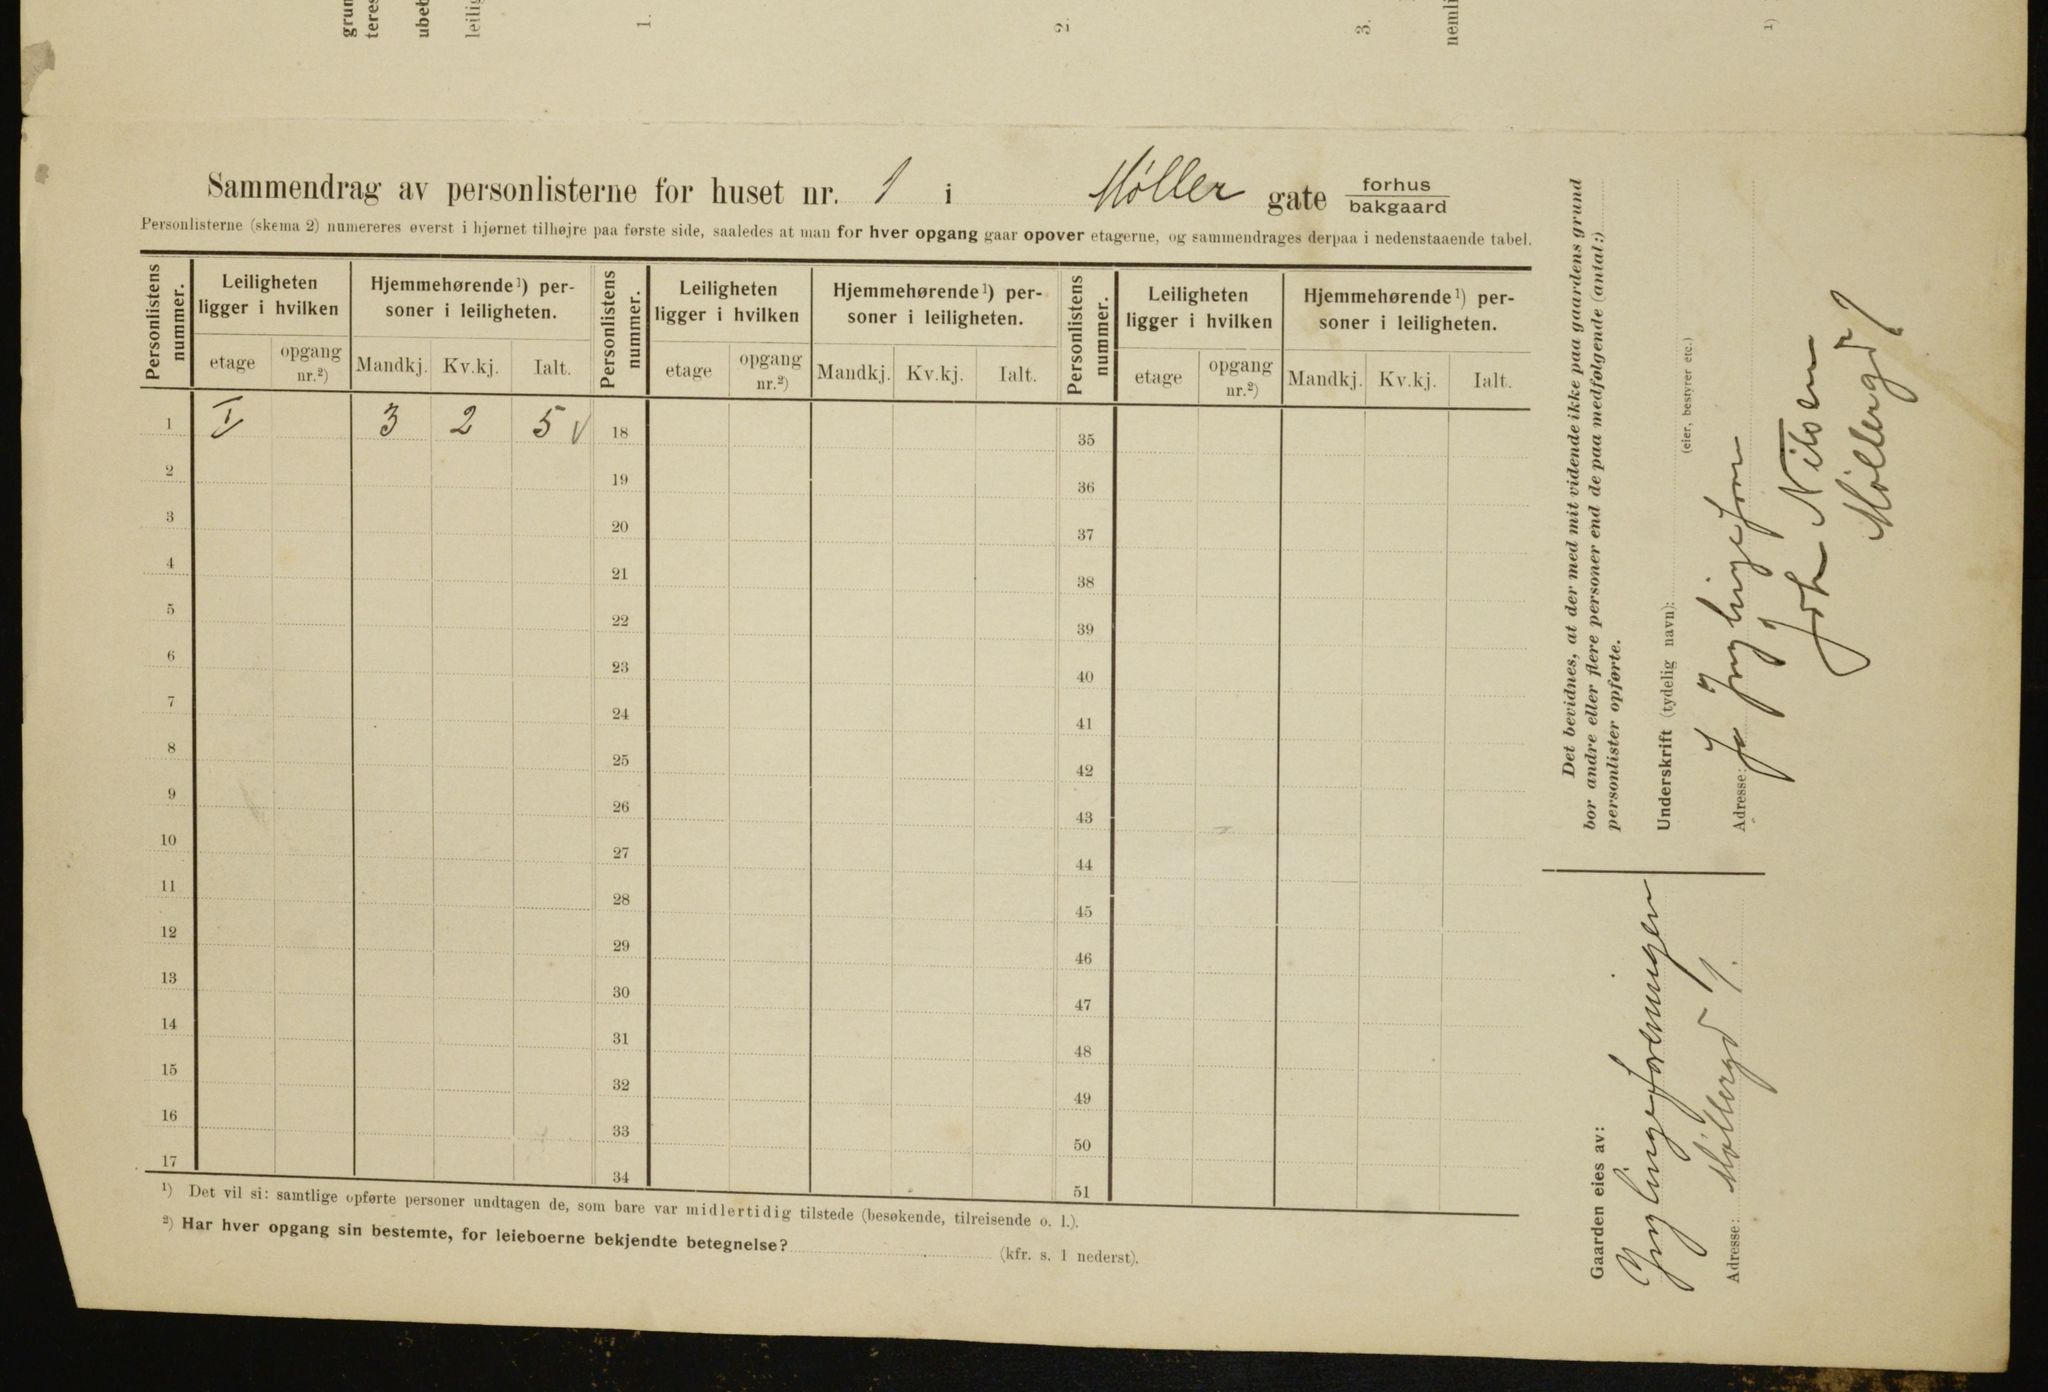 grun
teres
ubeb
leilig
1.
2.
3.
nemli
1)
Sammendrag av personlisterne for huset nr. 1 i Møller gate forhus bakgaard
Personlisterne (skema 2) numereres øverst i hjørnet tilhøjre paa første side, saaledes at man for hver opgang gaar opover etagerne, og sammendrages derpaa i nedenstaaende tabel.
Personlistens nummer.
Leiligheten ligger i hvilken
Hjemmehørende¹) personer i leiligheten.
Personlistens nummer.
Leiligheten ligger i hvilken
Hjemmehørende¹) personer i leiligheten.
Personlistens nummer.
Leiligheten ligger i hvilken
Hjemmehørende¹) personer i leiligheten.
etage opgang nr.²) Mandkj. Kv.kj. Ialt. etage opgang nr.²) Mandkj. Kv.kj. Ialt. etage opgang nr.²) Mandkj. Kv.kj. Ialt.
1 I 3 2 5 18 35
2 19 36
3 20 37
4 21 38
5 22 39
6 23 40
7 24 41
8 25 42
9 26 43
10 27 44
11 28 45
12 29 46
13 30 47
14 31 48
15 32 49
16 33 50
17 34 51
¹) Det vil si: samtlige opførte personer undtagen de, som bare var midlertidig tilstede (besøkende, tilreisende o. l.).
²) Har hver opgang sin bestemte, for leieboerne bekjendte betegnelse? (kfr. s. 1 nederst).
Det bevidnes, at der med mit vidende ikke paa gaardens grund
bor andre eller flere personer end de paa medfølgende (antal:)
personlister opførte.
Underskrift (tydelig navn):
(eier, bestyrer etc.)
Adresse:
Joh Nilsen
Møllergd 1
Gaarden eies av:
Ynglingeforeningen
Adresse: Møllergd 1.